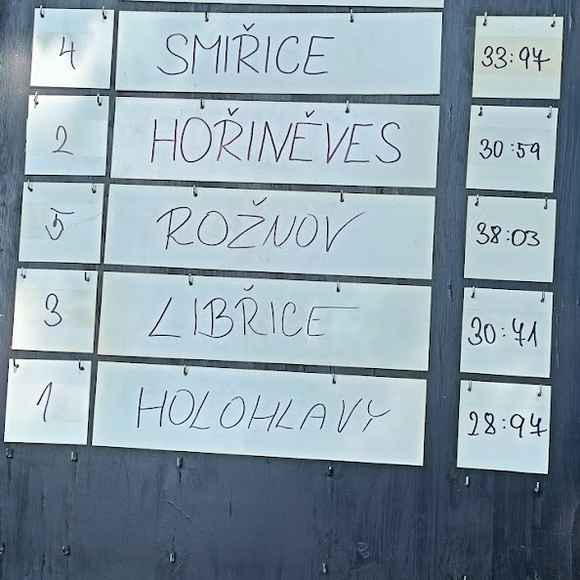 4 SMIŘICE 33:97
2 HOŘINĚVES 30:59
5 ROŽNOV 38:03
3 LIBŘICE 30:71
1 HOLOHLAVY 28:97